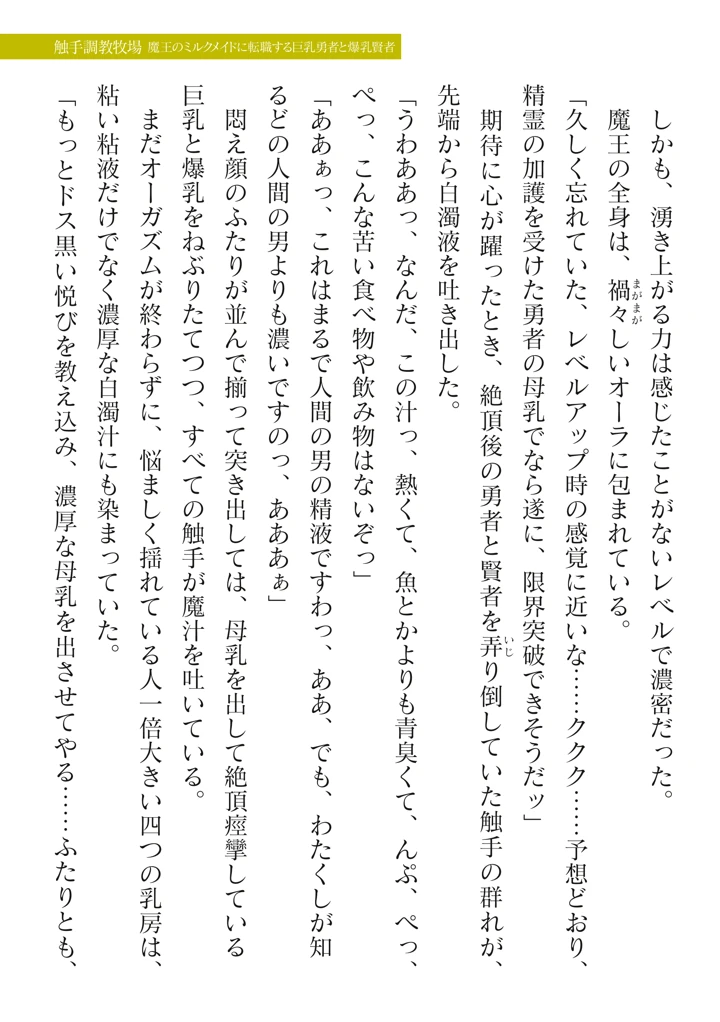 触手調教牧場 魔王のミルクメイドに転職する巨乳勇者と爆乳賢者
しかも、湧き上がる力は感じたことがないレベルで濃密だった。
魔王の全身は、禍々しいオーラに包まれている。
「久しく忘れていた、レベルアップ時の感覚に近いな……ククク……予想どおり、
精霊の加護を受けた勇者の母乳でなら遂に、限界突破できそうだッ」
期待に心が躍ったとき、絶頂後の勇者と賢者を弄り倒していた触手の群れが、
先端から白濁液を吐き出した。
「うわああっ、なんだ、この汁っ、熱くて、魚とかよりも青臭くて、んぷ、ぺっ、
ぺっ、こんな苦い食べ物や飲み物はないぞっ」
「ああぁっ、これはまるで人間の男の精液ですわっ、ああ、でも、わたくしが知
るどの人間の男よりも濃いですのっ、あああぁ」
悶え顔のふたりが並んで揃って突き出しては、母乳を出して絶頂痙攣している
巨乳と爆乳をねぶりたてつつ、すべての触手が魔汁を吐いている。
まだオーガズムが終わらずに、悩ましく揺れている人一倍大きい四つの乳房は、
粘い粘液だけでなく濃厚な白濁汁にも染まっていた。
「もっとドス黒い悦びを教え込み、濃厚な母乳を出させてやる……ふたりとも、